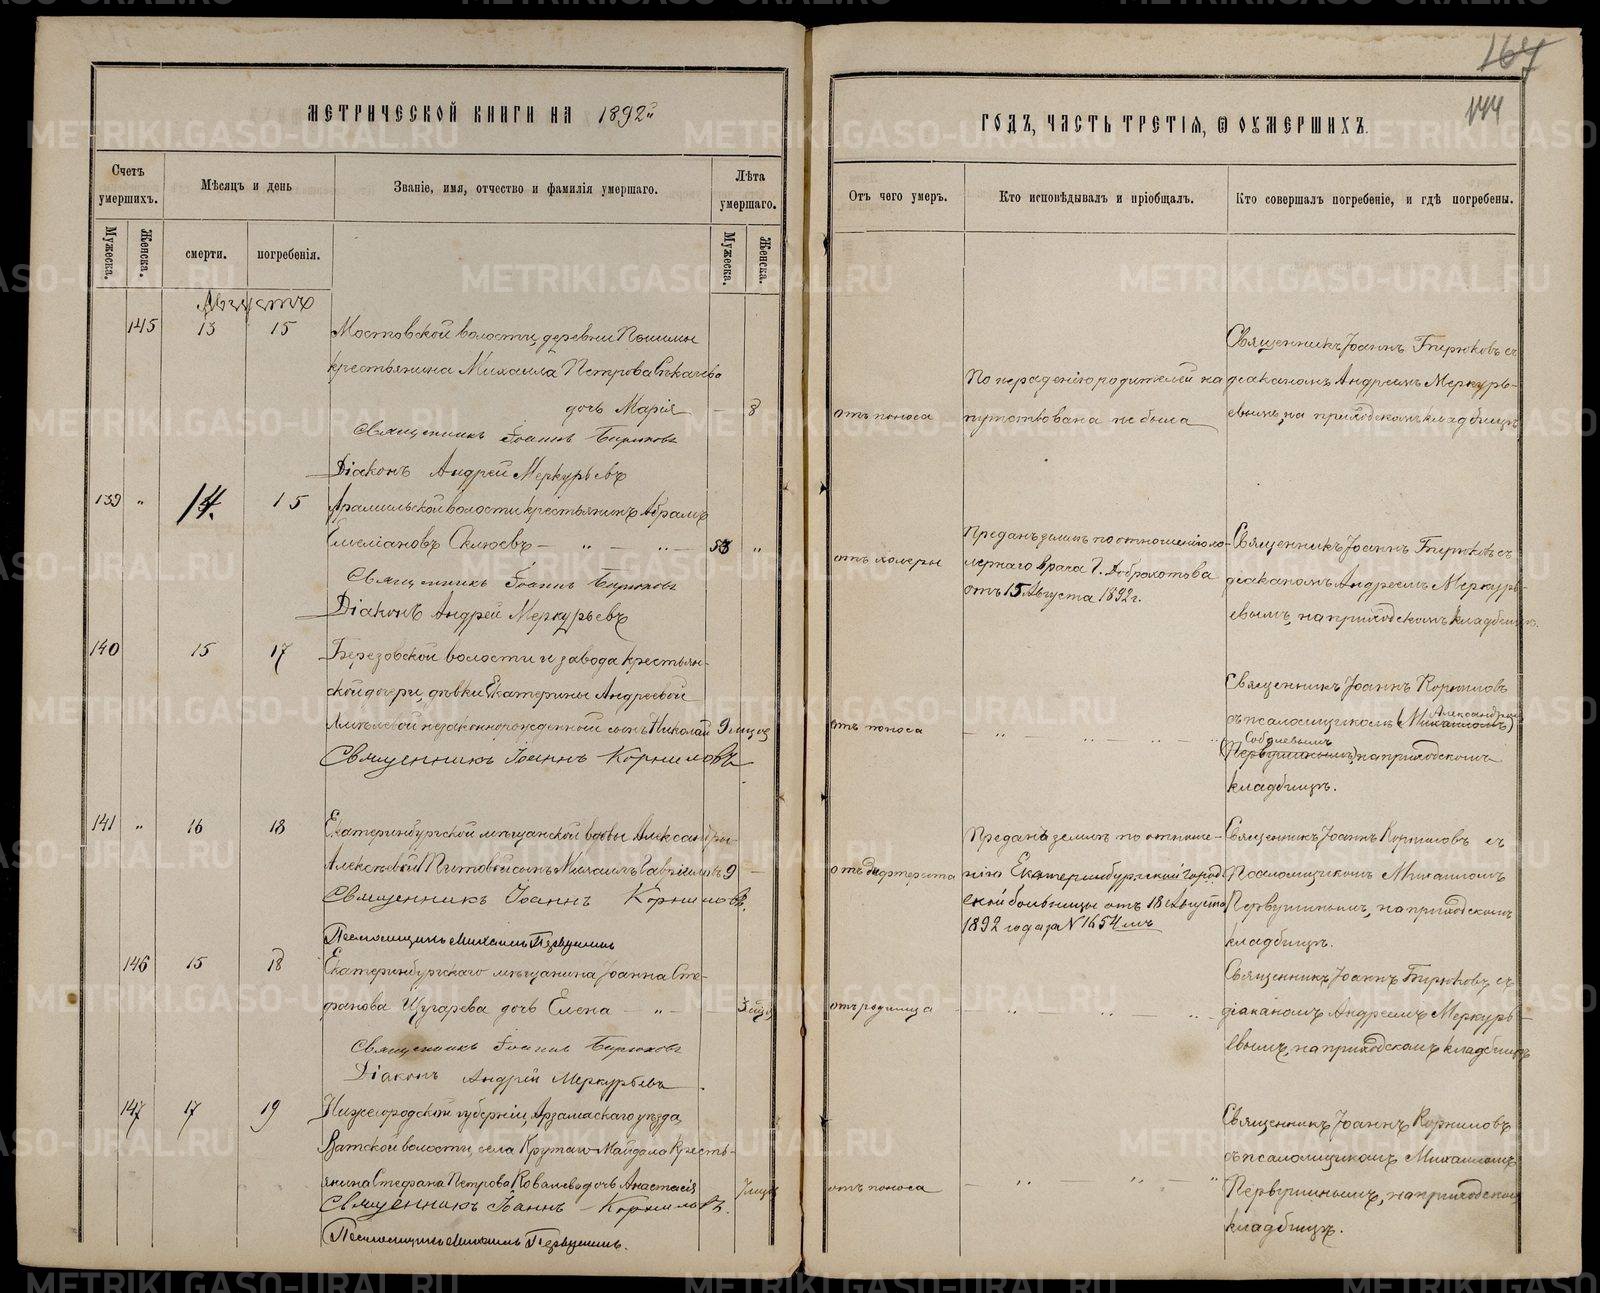 167
144
МЕТРИЧЕСКОЙ КНИГИ НА 1892й
ГОДЪ, ЧАСТЬ ТРЕТІЯ, Ѿ ОУМЕРШИХЪ.
Счетъ умершихъ.
Мѣсяцъ и день
Званіе, имя, отчество и фамилія умершаго.
Лѣта умершаго.
Отъ чего умеръ.
Кто исповѣдывалъ и пріобщалъ.
Кто совершалъ погребеніе, и гдѣ погребены.
Мужеска.
Женска.
смерти.
погребенія.
Мужеска.
Женска.
Августъ
145 13 15
Мостовской волости, деревни Пышмы
крестьянина Михаила Петрова
дочь Марія — 8
Священникъ Іоаннъ Бирюковъ
Діаконъ Андрей Меркурьевъ
отъ поноса
По нераденію родителей на
путствована не была
Священникъ Іоаннъ Бирюковъ съ
діакономъ Андреемъ Меркурь-
евымъ, на приходскомъ кладбищѣ
139 " 14. 15
Арамильской волости крестьянинъ Абрамъ
— " — " — 53 "
Священникъ Іоаннъ Бирюковъ
Діаконъ Андрей Меркурьевъ
отъ холеры
Преданъ землѣ по отношенію хо-
лернаго врача Г. Доброхотова
отъ 15 Августа 1892 г.
Священникъ Іоаннъ Бирюковъ съ
діакономъ Андреемъ Меркурь-
евымъ, на приходскомъ кладбищѣ.
140 15 17
Березовской волости и завода крестьян-
ской дочери, дѣвки Екатерины Андреевой
незаконнорожденный сынъ Николай 9 мѣсяц
Священникъ Іоаннъ Корниловъ
отъ поноса
Священникъ Іоаннъ Корниловъ
съ псаломщикомъ (Михаиломъ) Александромъ
(Первушинымъ) на приходскомъ
кладбищѣ.
141 " 16 18
Екатеринбургской мѣщанской вдовы Александры
Алексѣевой Питовой сынъ Михаилъ Гавріиловъ 9 —
Священникъ Іоаннъ Корниловъ.
Псаломщикъ Михаилъ Первушинъ
отъ дифтерита
Преданъ землѣ по отноше-
нію Екатеринбургской город-
ской больницы отъ 18 Августа
1892 года за № 1654мъ
Священникъ Іоаннъ Корниловъ съ
Псаломщикомъ Михаиломъ
Первушинымъ, на приходскомъ
кладбищѣ.
146 15 18
Екатеринбургскаго мѣщанина Іоанна Сте-
фанова дочь Елена — " —
Священникъ Іоаннъ Бирюковъ
Діаконъ Андрей Меркурьевъ
отъ родимца
Священникъ Іоаннъ Бирюковъ съ
діакономъ Андреемъ Меркурь-
евымъ, на приходскомъ кладбищѣ
147 17 19
Нижегородской губерніи, Арзамаскаго уѣзда,
волости, села Крутаго Майдана кресть-
янина Стефана Петрова Ковалева дочь Анастасія
Священникъ Іоаннъ Корниловъ.
Псаломщикъ Михаилъ Первушинъ.
отъ поноса
Священникъ Іоаннъ Корниловъ
съ псаломщикомъ Михаиломъ
Первушинымъ, на приходскомъ
кладбищѣ.
METRIKI.GASO-URAL.RU